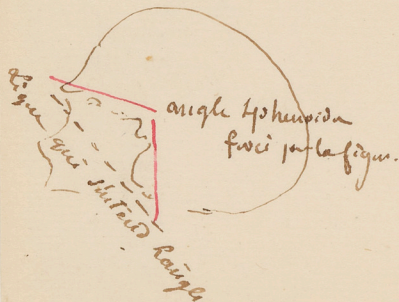 angle sphenoida
fixé par la figure.
Ligne qui s'intend l'angle